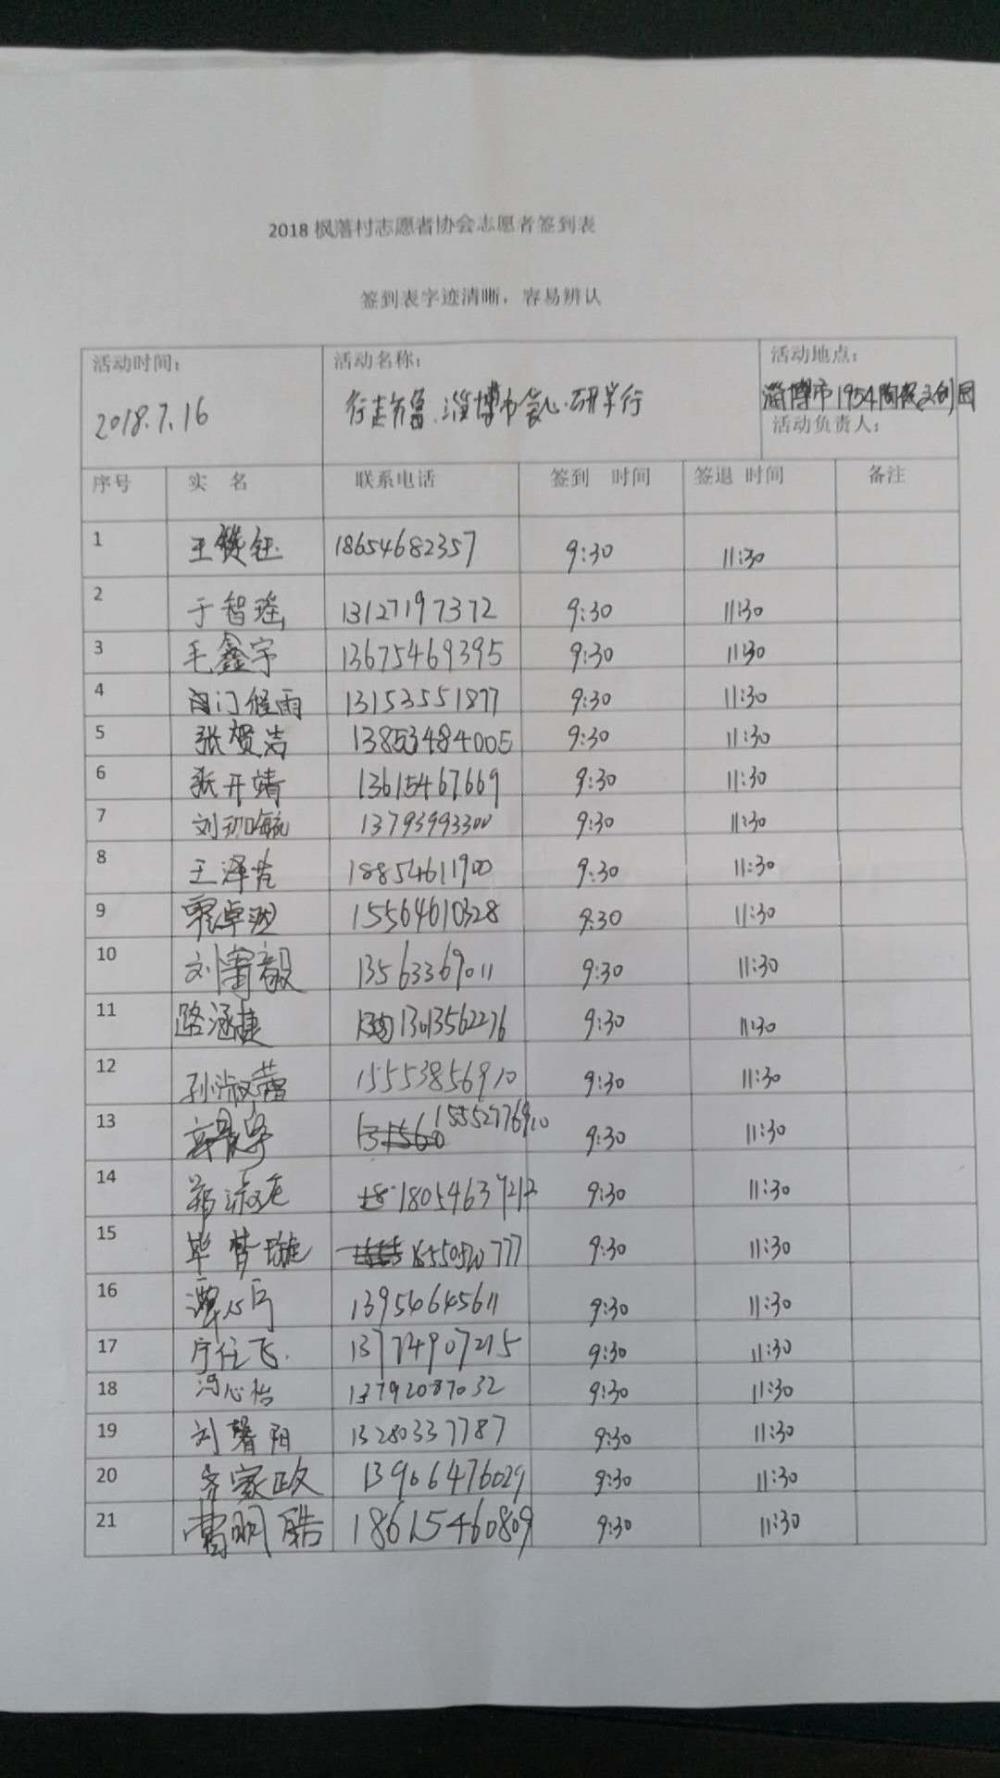 2018 枫落村志愿者协会志愿者签到表
签到表字迹清晰，容易辨认
活动时间： 活动名称： 活动地点：
2018.7.16 行走齐鲁、淄博市 研学行 淄博市1954陶瓷文创园
活动负责人：
序号 实 名 联系电话 签到 时间 签退 时间 备注
1 王 钰 18654682357 9:30 11:30
2 于智瑶 13127197372 9:30 11:30
3 毛鑫宇 13675469395 9:30 11:30
4 门 雨 13153551877 9:30 11:30
5 张贺 13853484005 9:30 11:30
6 张开靖 13615467669 9:30 11:30
7 刘 航 13793993300 9:30 11:30
8 王泽 18854611900 9:30 11:30
9 卓 15564610328 9:30 11:30
10 刘 毅 13563369011 9:30 11:30
11 路涵捷 13013562276 9:30 11:30
12 孙淑 15553856910 9:30 11:30
13 15552776910 9:30 11:30
14 郑淑 18054637212 9:30 11:30
15 毕梦璇 777 9:30 11:30
16 谭 13954645611 9:30 11:30
17 任飞 13774907215 9:30 11:30
18 冯心怡 13792087032 9:30 11:30
19 刘馨阳 13280337787 9:30 11:30
20 齐家政 13906476029 9:30 11:30
21 曹明皓 18615460809 9:30 11:30